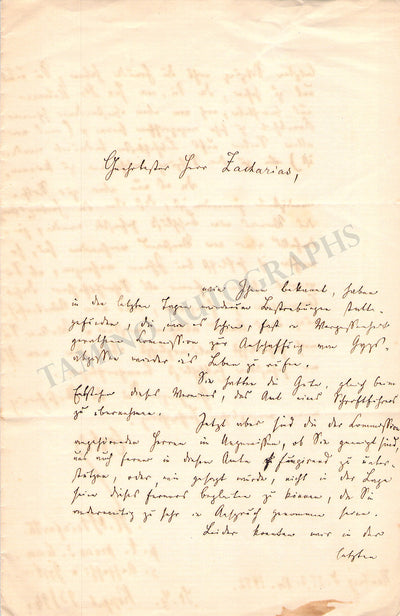 Geehrtester Herr Zacharias,
wie Ihnen bekannt, haben
in den letzten Tagen wiederum Bestrebungen statt-
gefunden, die, wie es schien, fast in Vergessenheit
gerathene Commission zur Anschaffung von Gyps-
abgüssen wieder ins Leben zu rufen.
Sie hatten die Güte, gleich beim
Entstehen dieses Vereines, das Amt eines Schriftführers
zu übernehmen.
Jetzt aber sind die der Commission
angehörenden Herren in Ungewissen, ob Sie geneigt sind,
uns auch ferner in diesem Amte fungirend zu unter-
stützen, oder, wie gesagt wurde, nicht in der Lage
seien dieses ferner begleiten zu können, da Sie
anderweitig zu sehr in Anspruch genommen seien.
Leider konnten wir in der
letzten
TAMINO AUTOGRAPHS